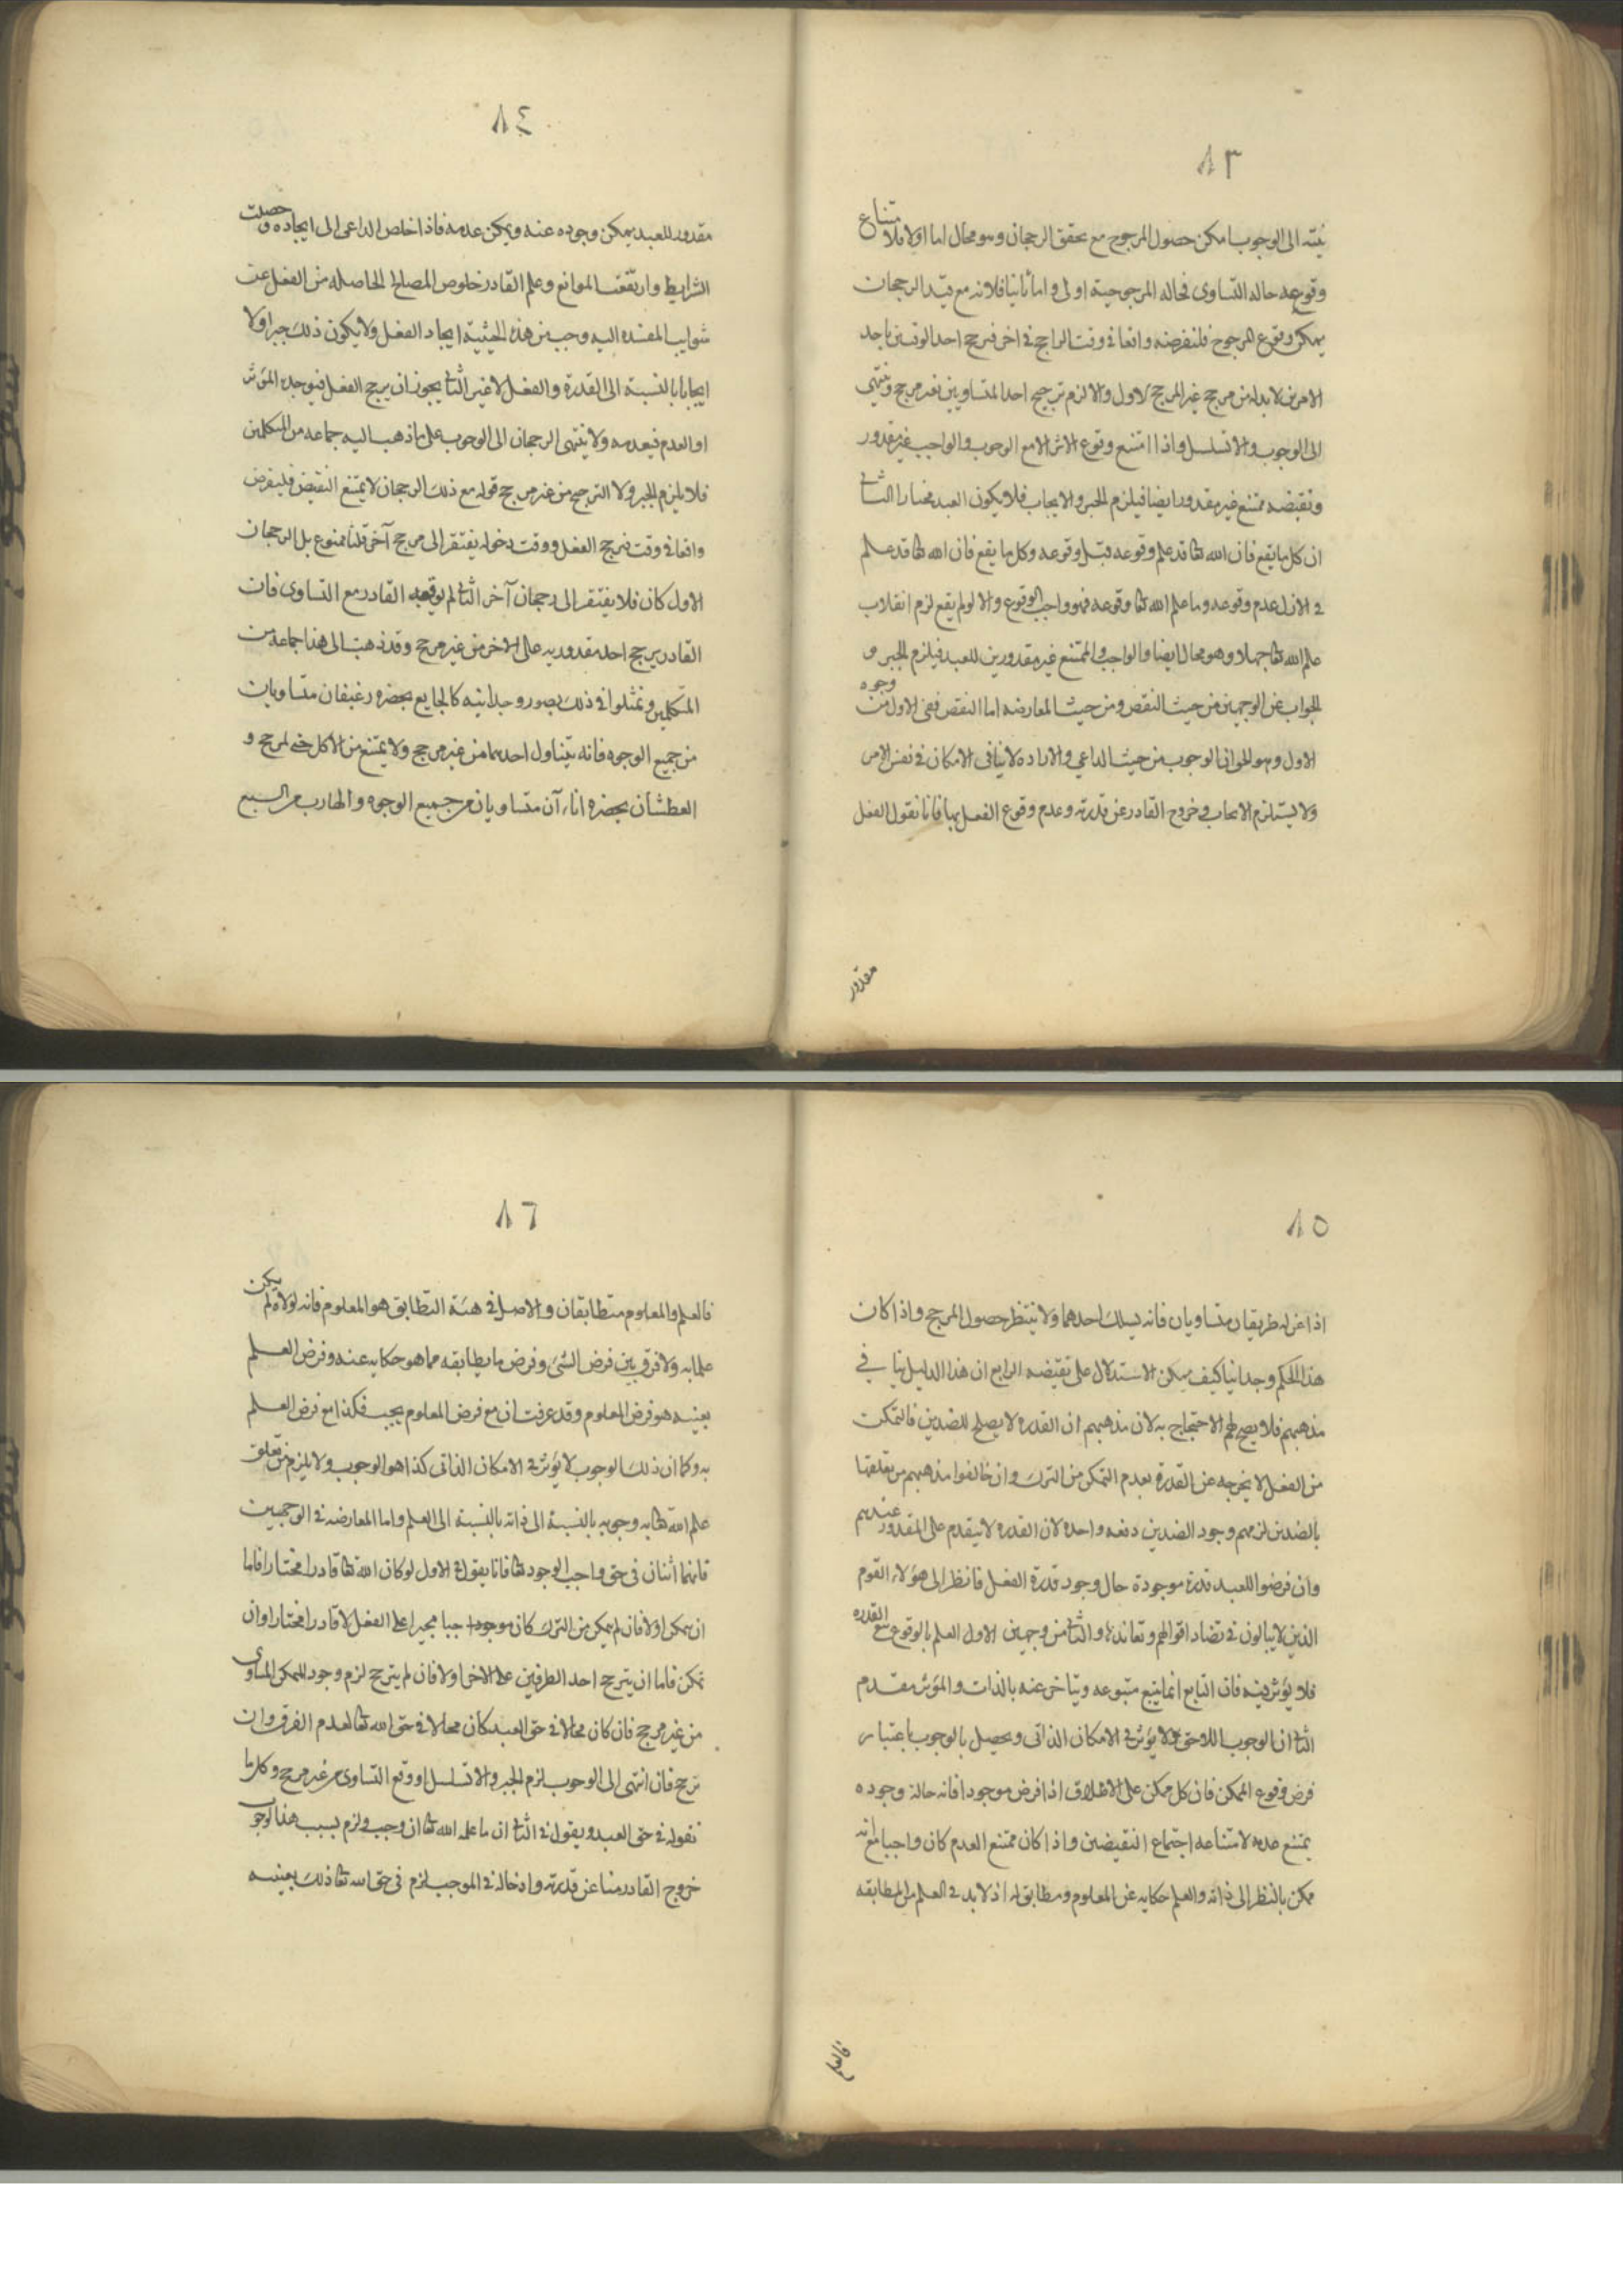 ٨٣
ينته الى الوجوب امكن حصول المرجوح مع تحقق الرجحان وهو محال اما اولا فلامتناع
وقوعه حالة التساوى فحالة المرجوحية اولى واما ثانيا فلانه مع قيد الرجحان
يمكن وقوع المرجوح فلنفرضه واقعا فى وقت الراجح فى اخر فترجح احد الوقتين باحد
الامرين لا بد له من مرجح غير المرجح الاول والا لزم ترجيح احد المتساويين بغير مرجح وينتهى
الى الوجوب والا تسلسل واذا امتنع وقوع الاثر الا مع الوجوب والواجب غير مقدور
ونقيضه ممتنع غير مقدور ايضا فيلزم الجبر والايجاب فلا يكون العبد مختارا الثانى
ان كل ما يقع فان الله تعا قد علم وقوعه قبل وقوعه وكل ما يقع فان الله تعا قد علم
فى الازل عدم وقوعه وما علم الله تعا وقوعه فهو واجب الوقوع والا لو لم يقع لزم انقلاب
علم الله تعا جهلا وهو محال ايضا والواجب والممتنع غير مقدورين للعبد فيلزم الجبر و
الجواب عن الوجهين من حيث النقض ومن حيث المعارضه اما النقض ففى الاول من وجوه
الاول وهو الحق ان الوجوب من حيث الداعى والاراده لا ينافى الامكان فى نفس الامر
ولا يستلزم الايجاب وخروج القادر عن قدرته وعدم وقوع الفعل بها فانا نقول الفعل
مقدور
٨٤
مقدور للعبد يمكن وجوده عنه ويمكن عدمه فاذا خلص الداعى الى ايجاده وحصلت
الشرايط وارتفعت الموانع وعلم القادر خلوص المصالح الحاصله من الفعل عن
شوايب المفسده اليه وجب من هذه الحيثية ايجاد الفعل ولا يكون ذلك جبرا ولا
ايجابا بالنسبة الى القدرة والفعل لا غير الثانى يجوز ان يرجح الفعل فيوجده المؤثر
او العدم فيعدمه ولا ينتهى الرجحان الى الوجوب على ما ذهب اليه جماعه من المتكلمين
فلا يلزم الجبر ولا الترجيح من غير مرجح قوله مع ذلك الرجحان لا يمتنع النقيض فليفرض
واقعا فى وقت فترجح الفعل ووقت دخوله يفتقر الى مرجح آخر قلنا ممنوع بل الرجحان
الاول كاف فلا يفتقر الى رجحان آخر الثالث لم يوقعه القادر مع التساوى فان
القادر يرجح احد مقدوريه على الاخر من غير مرجح وقد ذهب الى هذا جماعة من
المتكلمين وتمثلوا فى ذلك بصور وجدانيه كالجايع بحضره رغيفان متساويان
من جميع الوجوه فانه يتناول احدهما من غير مرجح ولا يمتنع من الاكل حتى المرجح و
العطشان بحضره اناء آن متساويان من جميع الوجوه والهارب من السبع
٨٥
اذا عن له طريقان متساويان فانه يسلك احدهما ولا ينتظر حصول المرجح واذا كان
هذا الحكم وجدانيا كيف يمكن الاستدلال على نقيضه الرابع ان هذا الدليل ينافى
مذهبهم فلا يصح لهم الاحتجاج به لان مذهبهم ان القدرة لا يصلح للضدين فالتمكن
من الفعل لا يخرجه عن القدرة بعدم التمكن من الترك وان خالفوا مذهبهم من تعلقها
بالضدين لزمهم وجود الضدين دفعه واحده لان القدره لا يتقدم على المقدور عندهم
وان فرضوا للعبد قدرة موجودة حال وجود قدرة الفعل فانظر الى هؤلاء القوم
الذين لا يبالون فى تضاد اقوالهم وتعاندها والثانى من وجهين الاول العلم بالوقوع تبع القدره
فلا يؤثر فيه فان التابع انما يتبع متبوعه ويتاخر عنه بالذات والمؤثر مقدم
الثانى ان الوجوب اللاحق لا يؤثر فى الامكان الذاتى ويحصل بالوجوب باعتبار
فرض وقوع الممكن فان كل ممكن على الاطلاق اذا فرض موجودا فانه حالة وجوده
يمتنع عدمه لامتناعه اجتماع النقيضين واذا كان ممتنع العدم كان واجبا مع انه
ممكن بالنظر الى ذاته والعلم حكايه عن المعلوم ومطابق له اذ لا بد فى العلم من المطابقه
فالعلم
٨٦
فالعلم والمعلوم متطابقان والاصل فى هيئة التطابق هو المعلوم فانه لولاه لم يكن
علما به ولا فرق بين فرض الشئ وفرض ما يطابقه مما هو حكايه عنه وفرض العلم
بعينه هو فرض المعلوم وقد عرفت ان مع فرض المعلوم يجب فكذا مع فرض العلم
به وكما ان ذلك الوجوب لا يؤثر فى الامكان الذاتى كذا هو الوجوب ولا يلزم من تعلق
علم الله تعا به وجوبه بالنسبة الى ذاته بالنسبة الى العلم واما المعارضه فى الوجهين
فانهما اثنان فى حق واجب الوجود تعا فانا يقول فى الاول لو كان الله تعا قادرا مختارا فاما
ان يمكن او لا فان لم يمكن من الترك كان موجودا جبا مجبرا على الفعل لا قادرا مختارا وان
تمكن فاما ان يترجح احد الطرفين على الاخر او لا فان لم يترجح لزم وجود الممكن المساوى
من غير مرجح فان كان محالا فى حق العبد كان محالا فى حق الله تعا لعدم الفرق وان
ترجح فان انتهى الى الوجوب لزم الجبر والا تسلسل او وقع التساوى من غير مرجح وكل ما
نقوله فى حق العبد ويقول فى الثانى ان ما علمه الله تعا ان وجب ولزم بسبب هذا الوجوب
خروج القادر منا عن قدرته وادخاله فى الموجب لزم فى حق الله تعا ذلك بعينه